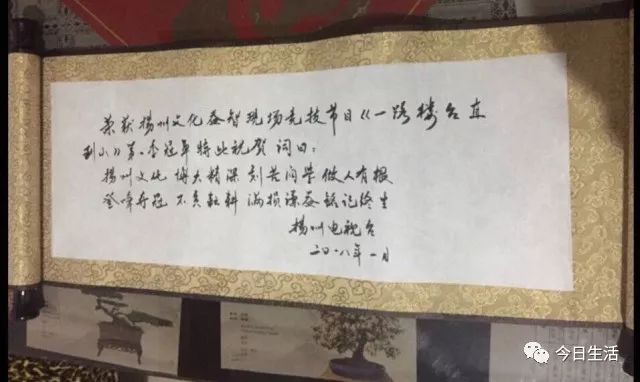 荣获扬州文化益智现场竞技节目《一路楼台直
到山》第一季冠军特此祝贺 词曰：
扬州文化 博大精深 刻苦问学 做人有根
登峰夺冠 不负 满损谦益 铭记终生
扬州电视台
二〇一八年一月
今日生活